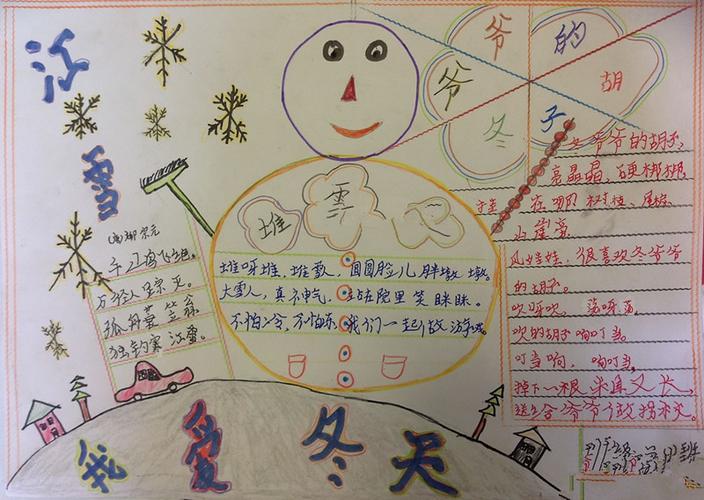 江雪
（唐）柳宗元
千山鸟飞绝，
万径人踪灭。
孤舟蓑笠翁，
独钓寒江雪。
堆雪人
堆呀堆，堆雪人，圆圆脸儿胖墩墩。
大雪人，真神气，站在院里笑眯眯。
不怕冷，不怕冻，我们一起做游戏。
冬爷爷的胡子
冬爷爷的胡子，
亮晶晶，硬梆梆，
在树枝、屋檐、
山崖旁
风娃娃，很喜欢冬爷爷
的胡子。
吹呀吹，荡呀荡，
吹的胡子响叮当。
叮当响，响叮当，
掉下一根来直又长，
送给爷爷做拐杖。
我爱冬天